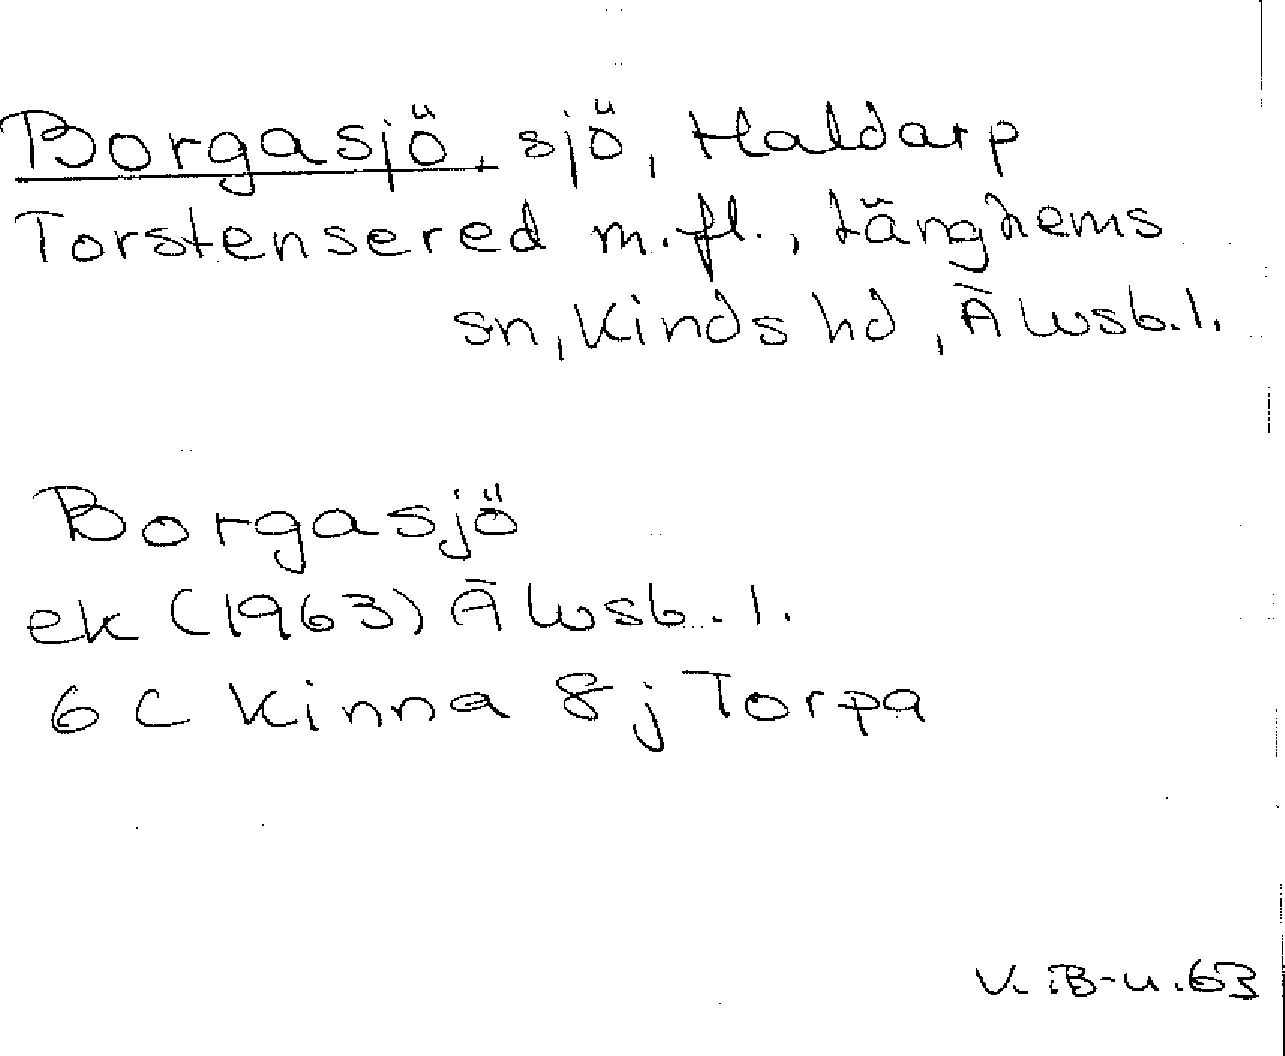 Borgasjö, sjö, Haldarp
Torstensered m.fl., Länghems
sn, Kinds hd, Älvsb.l.
Borgasjö
ek (1963) Älvsb.l.
6 C Kinna 8 j Torpa
V. B-u. 63